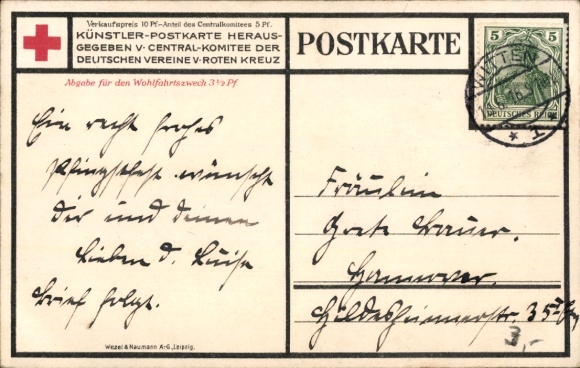 Verkaufspreis 10 Pf.-Anteil des Centralkomitees 5 Pf.
KÜNSTLER-POSTKARTE HERAUS-
GEGEBEN V. CENTRAL-KOMITEE DER
DEUTSCHEN VEREINE V. ROTEN KREUZ
Abgabe für den Wohlfahrtszweck 3½ Pf.
POSTKARTE
5 5
DEUTSCHES REICH
WITTEN
* 1
Ein recht frohes
Pfingstfest wünscht
Dir und deinen
Lieben d. Luise
Brief folgt.
Fräulein
Grete Bauer.
Hannover.
Hildesheimerstr. 35
3,-
Wezel & Naumann A.-G., Leipzig.